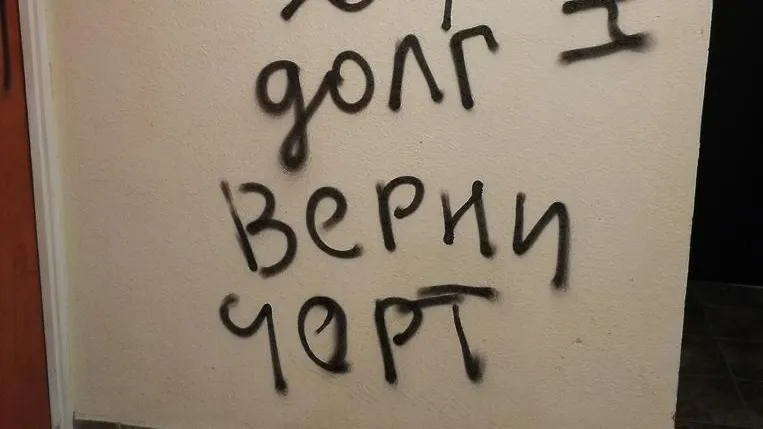 долг
Верни
чорт